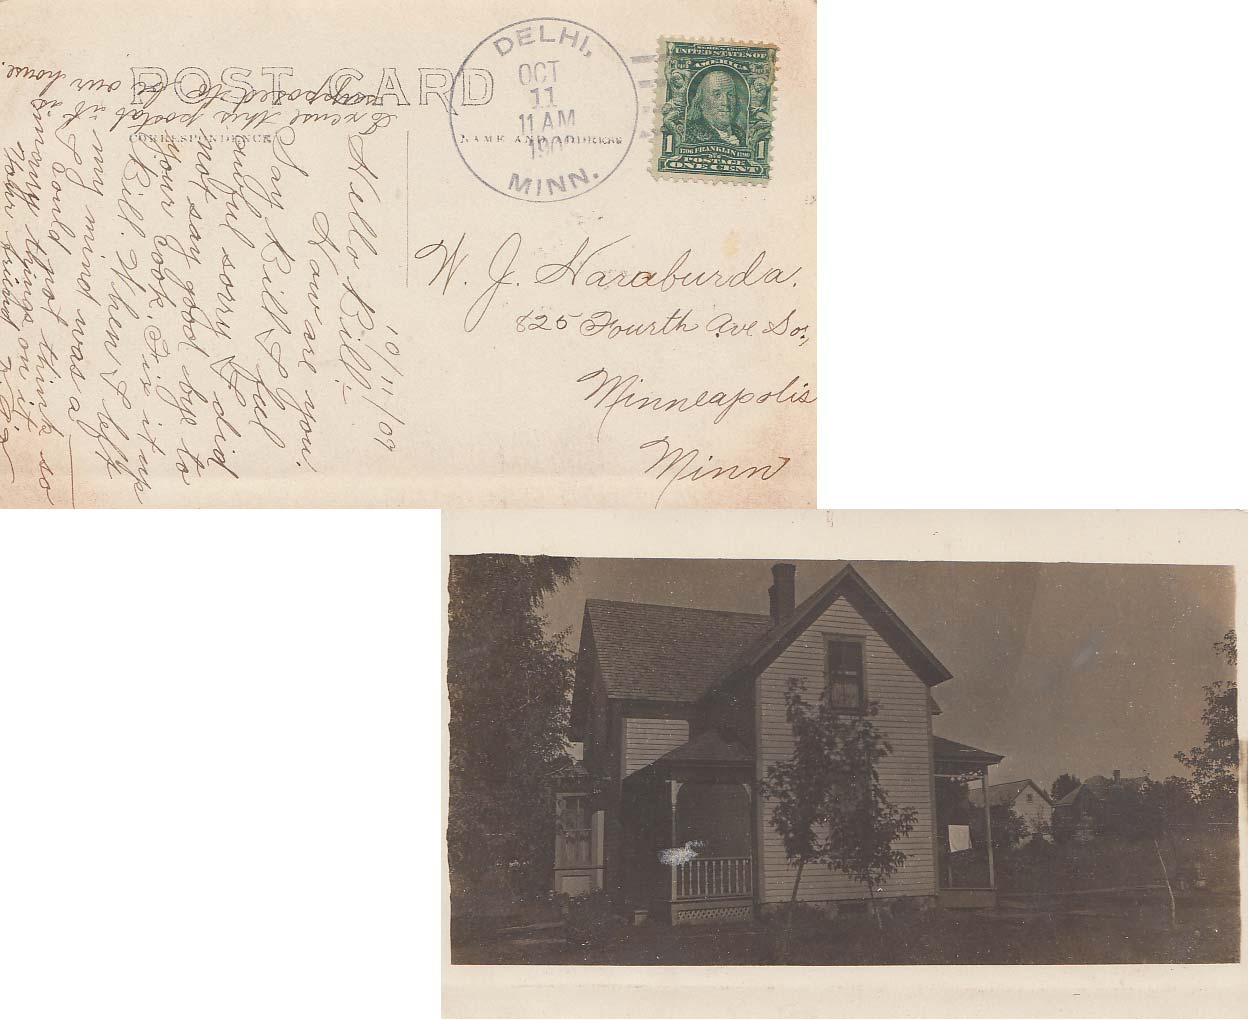 POST CARD
CORRESPONDENCE
NAME AND ADDRESS
DELHI,
OCT
11
11 AM
190
MINN.
SERIES 1902
UNITED STATES OF
AMERICA
1 1
1706 FRANKLIN 1790
POSTAGE
ONE CENT
W. J. Haraburda.
825 Fourth Ave So.,
Minneapolis
Minn
10/11/09
Hello Bill:-
How are you.
Say Bill I feel
awful sorry I did
not say good bye to
your cook. Fix it up
Bill. When I left
my mind was a
I could not think so
many things on it
Your friend
Excuse this postal it is
supposed to be our house.